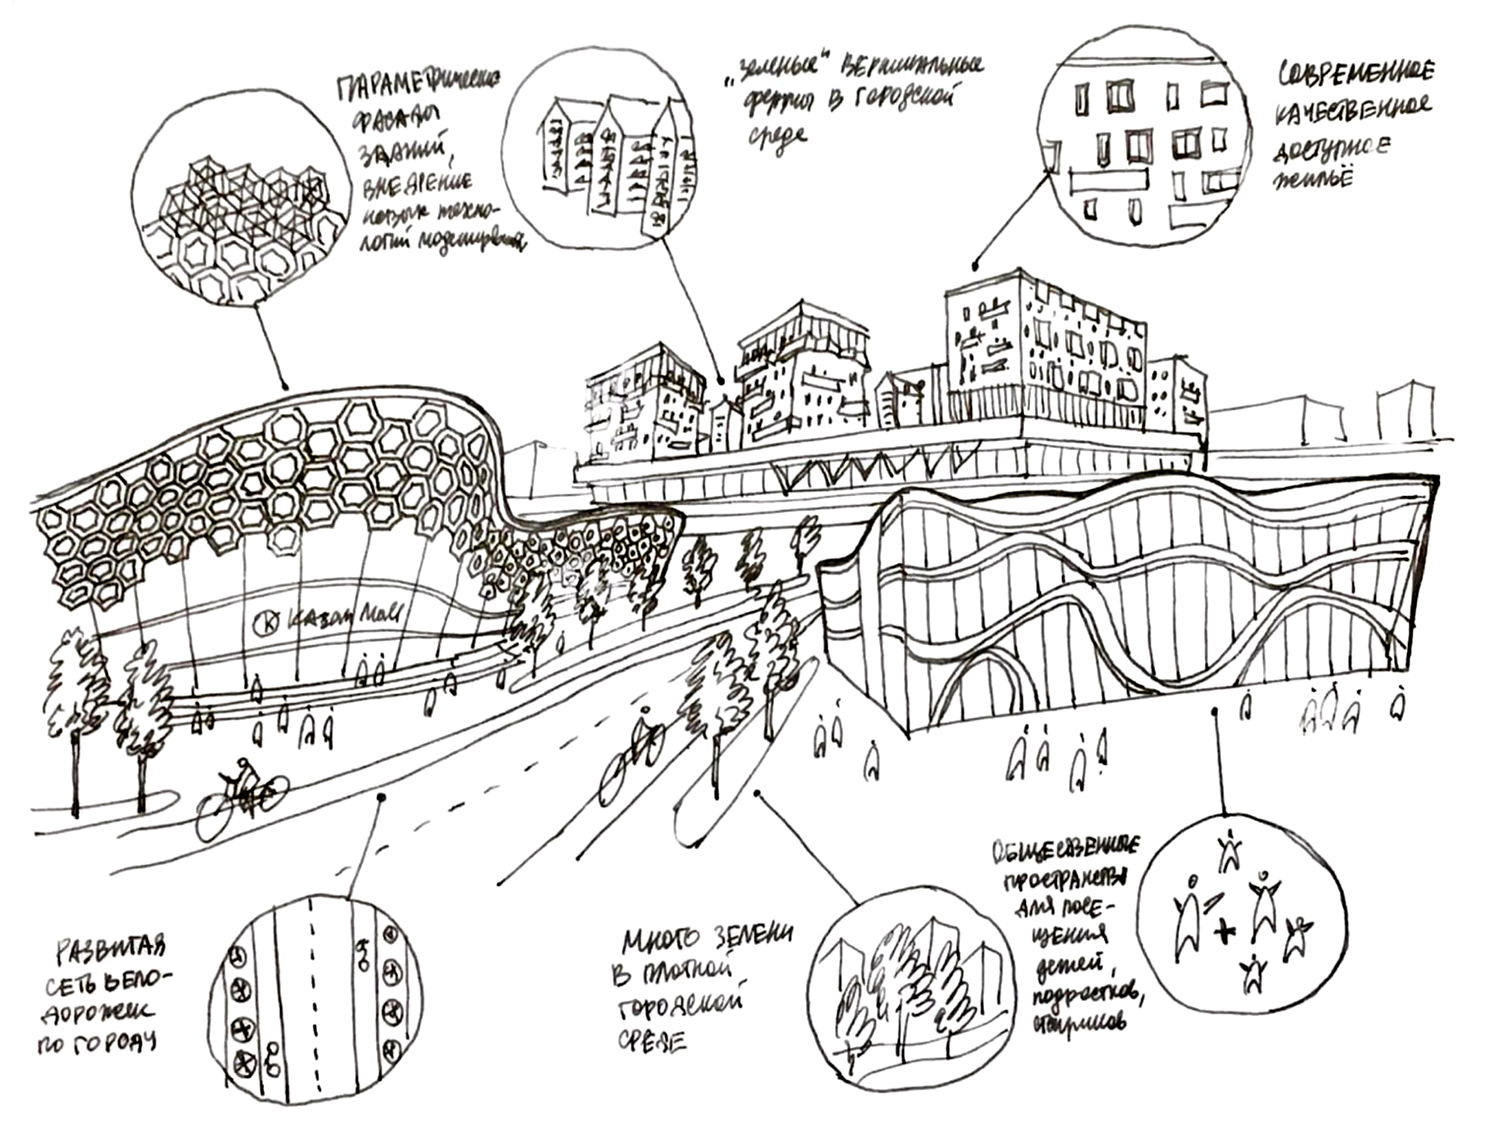 ПАРАМЕТРИЧЕСКИЕ
ФАСАДЫ
ЗДАНИЙ,
ВНЕДРЕНИЕ
новых техно-
логий моделирования
„зеленые“ ВЕРТИКАЛЬНЫЕ
фермы В ГОРОДСКОЙ
среде
СОВРЕМЕННОЕ
КАЧЕСТВЕННОЕ
ДОСТУПНОЕ
ЖИЛЬЁ
K KAZAN Mall
РАЗВИТАЯ
СЕТЬ ВЕЛО-
ДОРОЖЕК
ПО ГОРОДУ
МНОГО ЗЕЛЕНИ
В ПЛОТНОЙ
ГОРОДСКОЙ
СРЕДЕ
ОБЩЕСТВЕННЫЕ
ПРОСТРАНСТВА
ДЛЯ ПОСЕ-
ЩЕНИЯ
детей,
подростков,
стариков